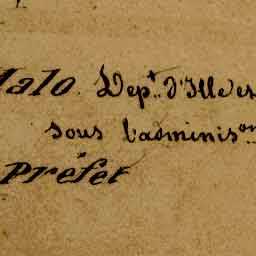 Malo. Dept. d'Ille et
sous l'adminison
Préfet